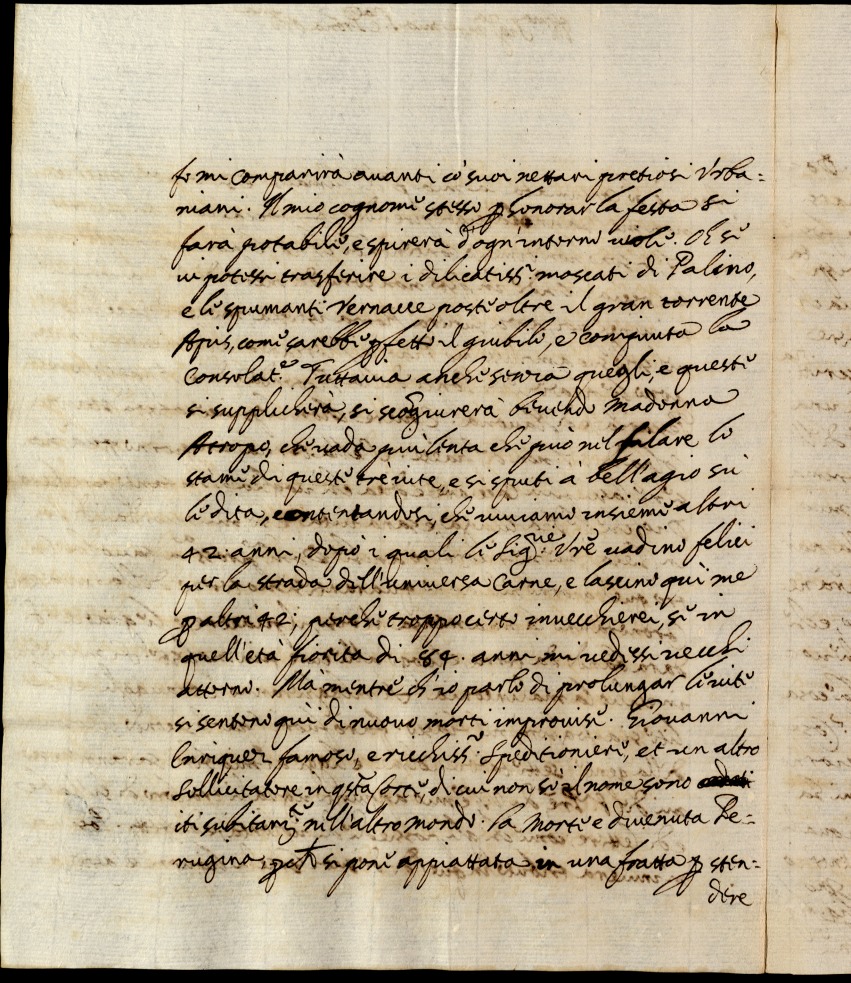 fo mi comparirà auanti cò suoi nettari pretiosi Vrba=
niani. Il mio cognome stesso p honorar la festa si
farà potabile, e spirerà d'ogn'intorno uiole. Oh se
ui potessi trasferire i dilicatiss.i moscati di Palino,
e le spumanti Vernacce poste oltre il gran torrente
Apis, come sarebbe pfetto il giubilo, e compiuta la
Consolat.e Tuttauia anche senza quegli, e queste
si supplicherà, si scogiurerà beuendo Madonna
Atropo, che uada più lenta che può nel filare lo
stame di queste trè uite, e si sputi à bell'agio sù
le dita, contentandosi, che uiuiamo insieme altri
42. anni, dopò i quali le Sig.rie Vre uadino felici
per la strada dell'uniuersa Carne, e lascino quì me
p altri 42; perche troppo certo inuecchierei, se in
quell'età fiorita di 84. anni mi uedessi uecchi
attorno. Mà mentre ch'io parlo di prolungar le uite
si sentono quì di nuouo morti improuise. Giouanni
Enriquez famoso, e ricchiss.o Speditioniere, et un altro
Sollicitatore in qsta Corte, di cui non sò il nome sono
iti subitam.te nell'altro mondo. La Morte è diuenuta Pe-
rugina, pche si pone appiattata in una fratta p sten=
dere